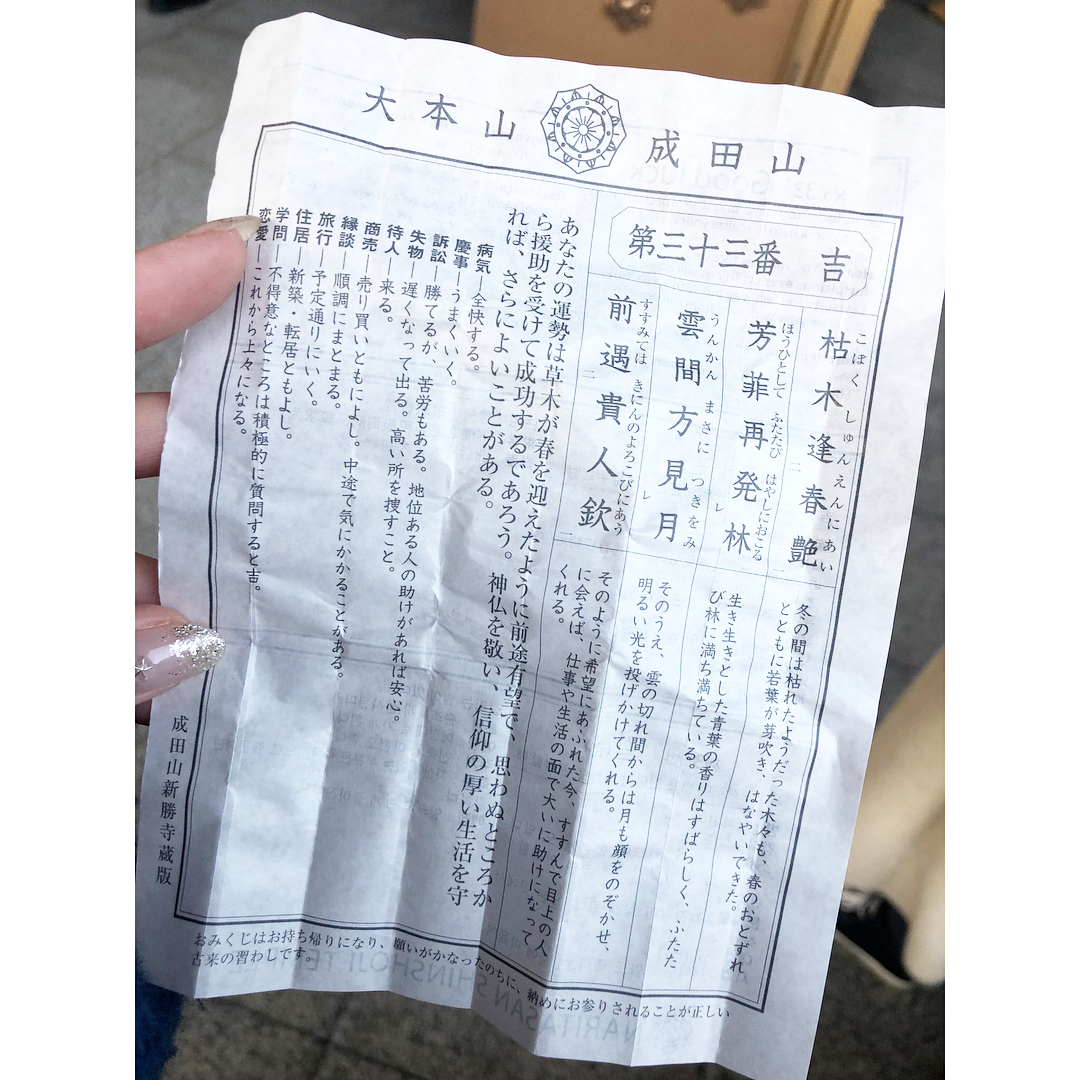 大本山 成田山
第三十三番 吉
枯木逢春艶
こぼくしゅんえんにあい
芳菲再発林
ほうひとして ふたたび はやしにおこる
雲間方見月
うんかん まさに つきをみ
前遇貴人欽
すすみては きにんのよろこびにあう
冬の間は枯れたようだった木々も、春のおとずれ
とともに若葉が芽吹き、はなやいできた。
生き生きとした青葉の香りはすばらしく、ふたた
び林に満ち満ちている。
そのうえ、雲の切れ間からは月も顔をのぞかせ、
明るい光を投げかけてくれる。
そのように希望にあふれた今、すすんで目上の人
に会えば、仕事や生活の面で大いに助けになって
くれる。
あなたの運勢は草木が春を迎えたように前途有望で、思わぬところか
ら援助を受けて成功するであろう。神仏を敬い、信仰の厚い生活を守
れば、さらによいことがある。
病気―全快する。
慶事―うまくいく。
訴訟―勝てるが、苦労もある。地位ある人の助けがあれば安心。
失物―遅くなって出る。高い所を捜すこと。
待人―来る。
商売―売り買いともによし。中途で気にかかることがある。
縁談―順調にまとまる。
旅行―予定通りにいく。
住居―新築・転居ともよし。
学問―不得意なところは積極的に質問すると吉。
恋愛―これから上々になる。
成田山新勝寺蔵版
おみくじはお持ち帰りになり、願いがかなったのちに、納めにお参りされることが正しい
古来の習わしです。